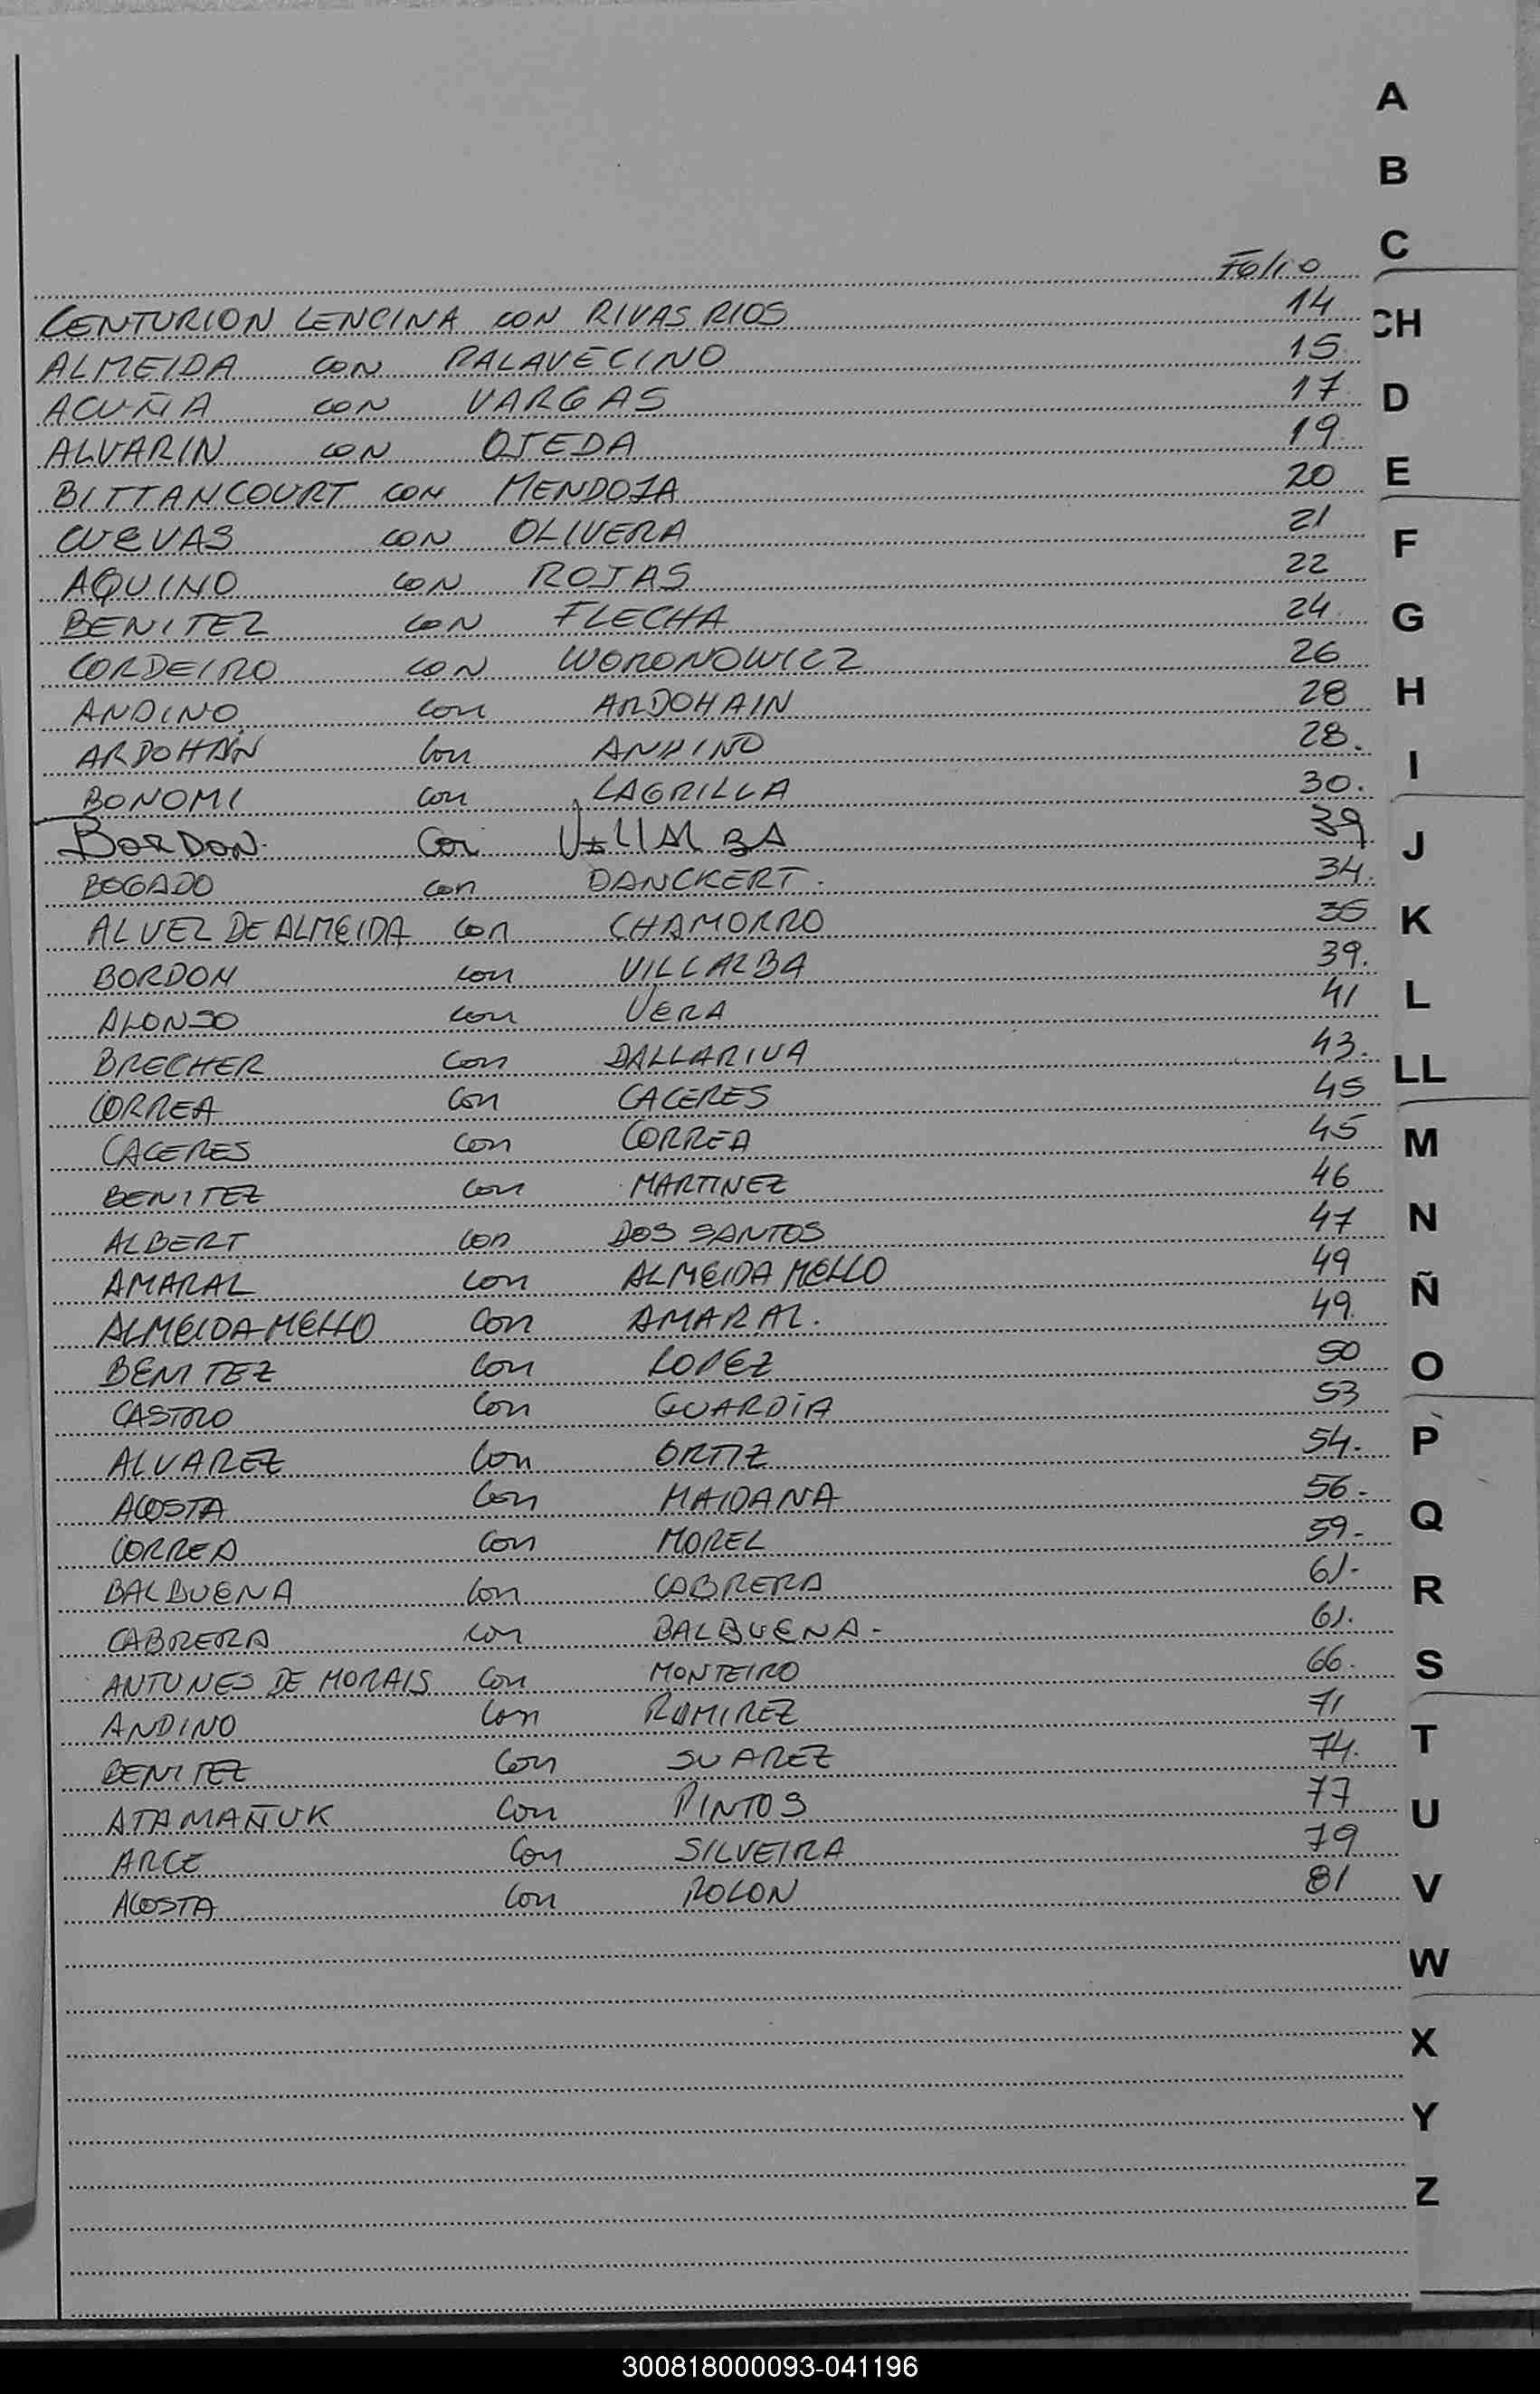 A
B
C
Folio
CENTURION LENCINA CON RIVAS RIOS 14
CH
ALMEIDA CON PALAVECINO 15
ACUÑA CON VARGAS 17
D
ALVARIN CON OJEDA 19
BITTANCOURT CON MENDOZA 20
E
CUEVAS CON OLIVERA 21
F
AQUINO CON ROJAS 22
BENITEZ CON FLECHA 24
G
CORDEIRO CON WORONOWICZ 26
ANDINO con ARDOHAIN 28
H
ARDOHAIN con ANDINO 28.
I
BONOMI con LAGRILLA 30.
BORDON Con VILLALBA 39
J
BOGADO con DANCKERT. 34.
ALVEZ DE ALMEIDA con CHAMORRO 35
K
BORDON con VILLALBA 39.
ALONSO con VERA 41
L
BRECHER con DALLARIVA 43.
LL
CORREA con CACERES 45
CACERES con CORREA 45
M
BENITEZ con MARTINEZ 46
ALBERT con DOS SANTOS 47
N
AMARAL con ALMEIDA MELLO 49
Ñ
ALMEIDA MELLO con AMARAL. 49.
BENITEZ con LOPEZ 50
O
CASTRO con GUARDIA 53
ALVAREZ con ORTIZ 54.-
P
ACOSTA con MAIDANA 56.-
Q
CORREA con MOREL 59.-
BALBUENA con CABRERA 61.-
R
CABRERA con BALBUENA.- 61.
ANTUNES DE MORAIS con MONTEIRO 66.
S
ANDINO con RAMIREZ 71
BENITEZ con SUAREZ 74.
T
ATAMAÑUK con PINTOS 77
U
ARCE con SILVEIRA 79
ACOSTA con ROLON 81
V
W
X
Y
Z
300818000093-041196